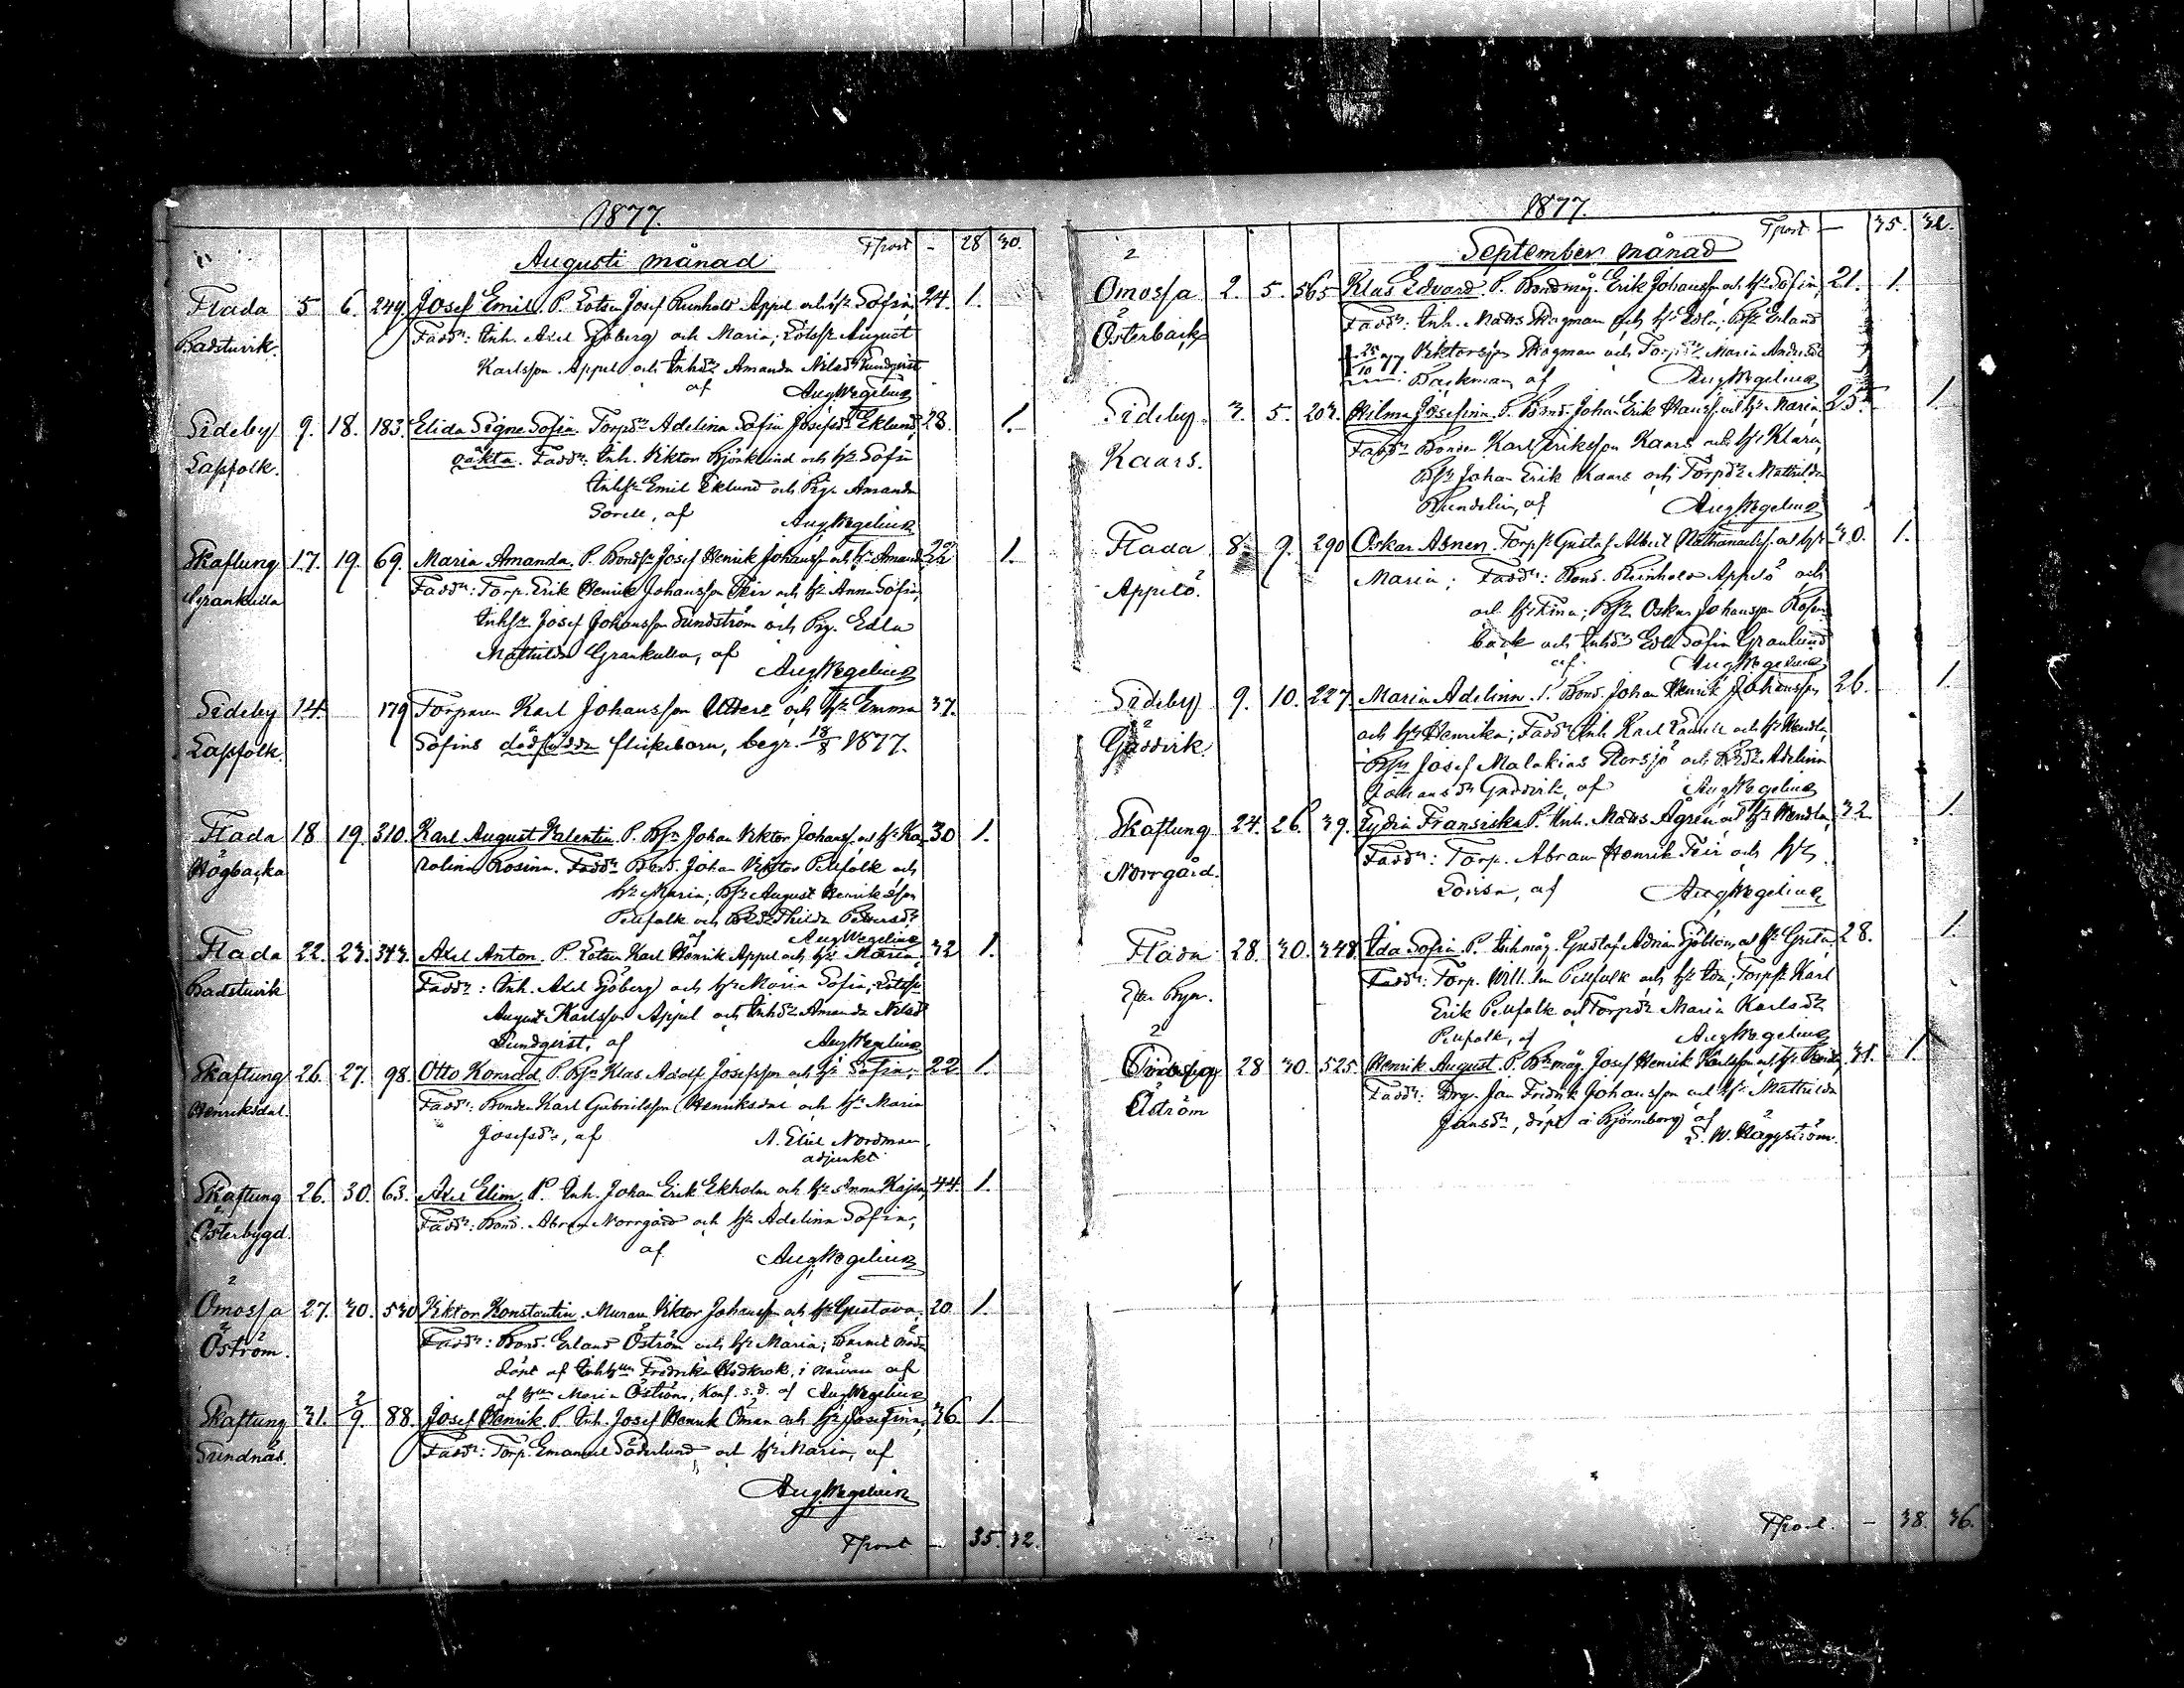 1877.
Augusti månad
Tsport - 28 30.
Flada 5 6. 249. Josef Emil. P. Lotsen Josef Reinhold Appel och h. Sofia, 24. 1.
Badstuvik. Fadd: Inh. Axel Sjöberg och Maria; Lotss. August
Karlsson Appel och Inhd. Amanda Nilsd. Sundqvist
af AugWegelius
Sideby 9. 18. 183. Elida Signe Sofia. Torpd. Adelina Sofia Josefsd. Eklund, 28. 1.
Lappfolk. oäkta. Fadd: Inh. Viktor Björklund och h. Sofia
Inhs. Emil Eklund och Pig. Amanda
af AugWegelius
Skaftung 17. 19. 69. Maria Amanda. P. Bonds. Josef Henrik Johansson och h. Amanda 22 1.
Grankulla Fadd: Torp. Erik Henrik Johansson och h. Anna Sofia,
Inhs. Josef Johansson Sundström och Pig. Edla
Mathilda Grankulla, af AugWegelius
Sideby 14. 179 Torparen Karl Johansson och h. Emma 37.
Lappfolk. Sofias dödfödda flickebarn, begr. 18/8 1877.
Flada 18 19. 310. Karl August Valentin. P. Bs. Johan Viktor Johanss. och h. Ka- 30 1.
Högbacka rolina Rosina. Fadd. Bond. Johan Viktor Pellfolk och
h. Maria; Bs. August Henriksson
Pellfolk och Bd. Thilda Pettersd.
af AugWegelius
Flada 22. 23. 343. Axel Anton. P. Lotsen Karl Henrik Appel och h. Maria, 32 1.
Badstuvik Fadd: Inh. Axel Sjöberg och h. Maria Sofia; Lotss.
August Karlsson Appel och Inhd. Amanda Nilsd.
Sundqvist, af AugWegelius
Skaftung 26. 27. 98. Otto Konrad. P. Bs. Klas Adolf Josefsson och h. Sofia; 22 1.
Henriksdal. Fadd: Bonden Karl Gabrielsson Henriksdal och h. Maria
Josefsd., af A. Eliel Nordman
adjunkt.
Skaftung 26. 30. 63. Axel Elim. P. Inh. Johan Erik Ekholm och h. Anna Kajsa, 44. 1.
Österbygd. Fadd: Bond. Abram Norrgård och h. Adelina Sofia;
af AugWegelius
Ömossa 27. 30. 530 Viktor Konstantin. Murare Viktor Johansson och h. Gustava; 20 1.
Öström. Fadd: Bond. Erland Öström och h. Maria; Barnet
döpt af Fredrika i närvaro af
af Maria Öström, Konf. s. d. af AugWegelius
Skaftung 31. 2/9. 88. Josef Henrik. P. Inh. Josef Henrik Öman och h. Josefina; 36. 1.
Sundnäs. Fadd: Torp. Emanuel Söderlund och h. Maria, af
AugWegelius
Tsport - 35. 32.
1877.
September månad
Tsport - 35. 32.
Ömossa 2. 5. 565 Klas Edvard. P. Bondmåg. Erik Johansson och h. Sofia, 21. 1.
Österback Fadd: Inh. Matts Skogman och h. Edla; Bs. Erland
25/10 77. Viktorsson Skogman och Torpd. Maria Andersd.
Backman, af AugWegelius
Sideby 3. 5. 203. Hilma Josefina. P. Bond. Johan Erik Hanss. och h. Maria, 25. 1.
Kaars. Fadd. Bonden Karl Eriksson Kaars och h. Klara,
Bs. Johan Erik Kaars och Torpd. Mathilda
Rundelin, af AugWegelius
Flada 8. 9. 290 Oskar Abner. Torps. Gustaf Albert Nathanaelss. och h. 30. 1.
Appelö. Maria; Fadd: Bond. Reinhold Appelö och
och h. Stina; Bs. Oskar Johansson Rosen-
back och Inhd. Edla Sofia Granlund
af AugWegelius
Sideby 9. 10. 227 Maria Adelina. P. Bond. Johan Henrik Johansson 26. 1.
Gåddvik. och h. Henrika; Fadd. Inh. Karl och h. Wendla,
Bs. Josef Malakias Storsjö och Adelina
Johansd. Gåddvik, af AugWegelius
Skaftung 24. 26. 39. Lydia Fransiska. P. Inh. Matts Ågren och h. Wendla, 32. 1.
Norrgård. Fadd: Torp. Abram Henrik och h.
Lovisa, af AugWegelius
Flada 28. 30. 348. Ida Sofia. P. Inhmåg. Gustaf Adrian Sjöblom och h. Greta, 28. 1.
Efter Byn. Fadd: Torp. Pellfolk och h. Ida; Torps. Karl
Erik Pellfolk och Torpd. Maria Karlsd.
Pellfolk, af AugWegelius
28 30. 525. Henrik August. P. Bmåg. Josef Henrik Karlsson och h. 31. 1.
Öström Fadd: Drg. Jan Fredrik Johansson och h. Mathilda
Jansd., döpt i Björneborg af
Häggström.
Tsport. - 38. 36.